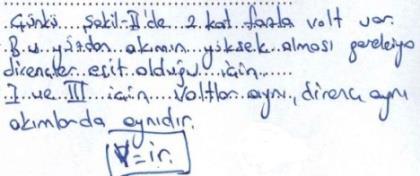 Çünkü Şekil-II'de 2 kat fazla volt var.
Bu yüzden akımın yüksek olması gerekiyo
dirençler eşit olduğu için
I ve III için Voltlar aynı, direnç aynı
akımlarda aynıdır.
V=ir.